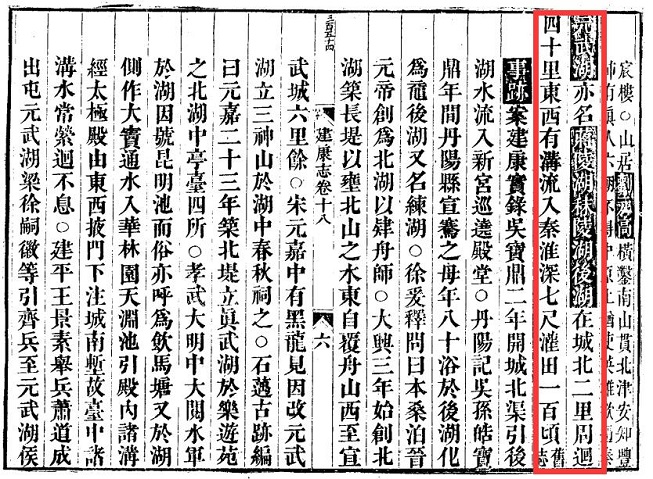 宸樓○山居
橫鑿南山貫北津安知豐
元武湖亦名蔣陵湖秣陵湖後湖在城北二里周迴
四十里東西有溝流入秦淮深七尺灌田一百頃舊志
事跡案建康實錄吳寶鼎二年開城北渠引後
湖水流入新宮巡遶殿堂○丹陽記吳孫皓寶
鼎年間丹陽縣宣騫之母年八十浴於後湖化
爲黿後湖又名練湖○徐爰釋問曰本桑泊晉
元帝創爲北湖以肄舟師○大興三年始創北
湖築長堤以壅北山之水東自覆舟山西至宣
建康志卷十八
六
武城六里餘○宋元嘉中有黑龍見因改元武
湖立三神山於湖中春秋祠之○石邁古跡編
曰元嘉二十三年築北堤立眞武湖於樂遊苑
之北湖中亭臺四所○孝武大明中大閱水軍
於湖因號昆明池而俗亦呼爲飲馬塘又於湖
側作大竇通水入華林園天淵池引殿內諸溝
經太極殿由東西掖門下注城南塹故臺中諸
溝水常縈迴不息○建平王景素舉兵蕭道成
出屯元武湖梁徐嗣徽等引齊兵至元武湖侯